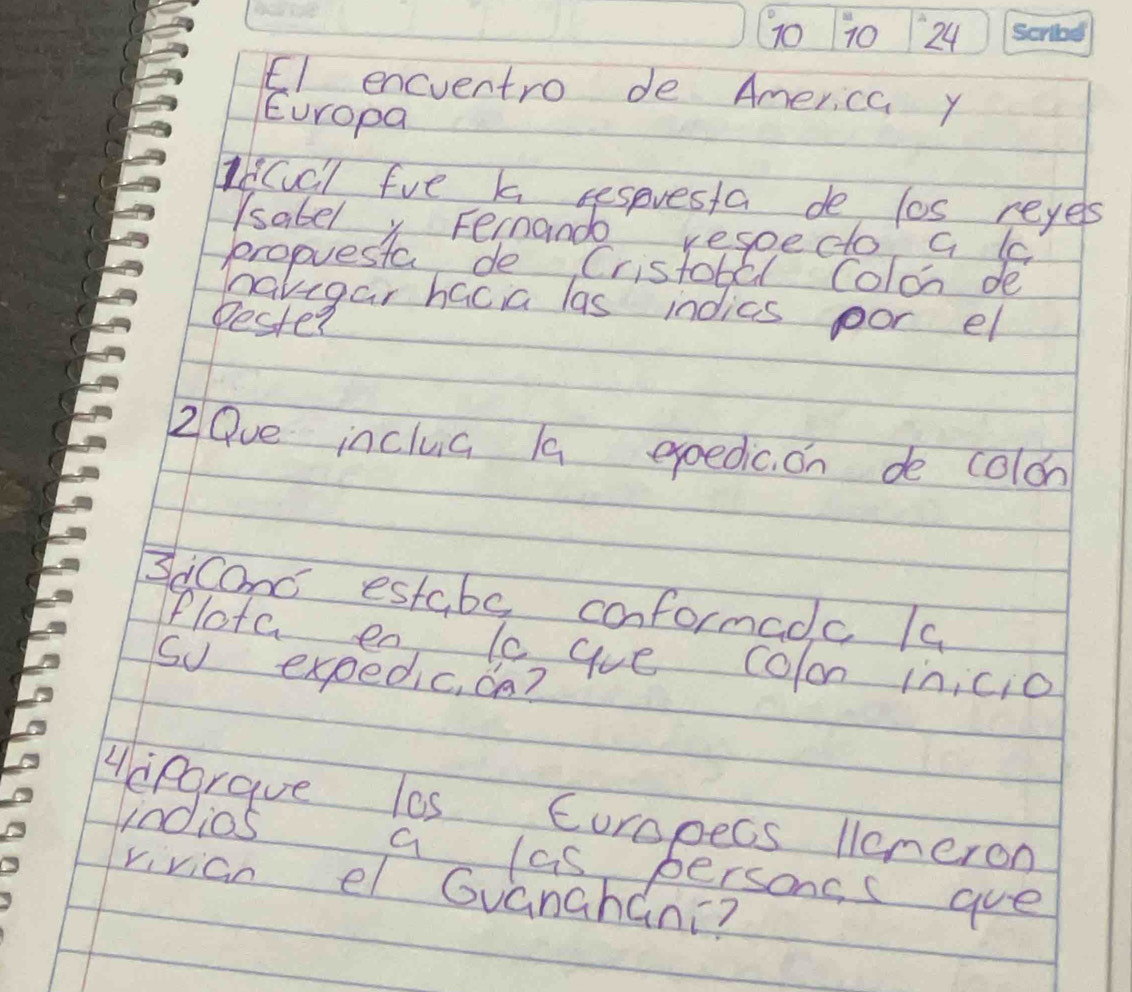 10 10 24 Scribe
El encuentro de America y
Europa
1¿Cuál fue la respuesta de los reyes
Isabel y Fernando respecto a la
propuesta de Cristobal Colón de
navegar hacia las indias por el
Oeste?
2 Que incluia la expedición de colón
3¿Como estaba conformada la
flota en la que colon inicio
su expedición?
4¿Porque los Europeos llameron
indios a las personas que
vivian el Guanahani?